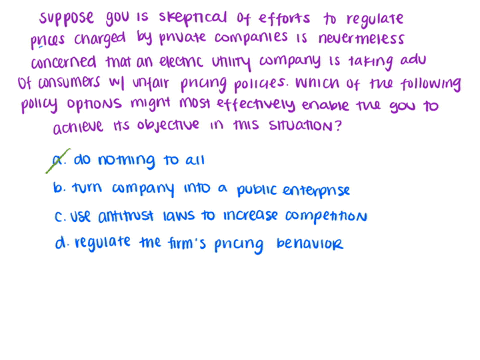 suppose gov is skeptical of efforts to regulate
prices charged by private companies is nevertheless
concerned that an electric utility company is taking adv
of consumers w/ unfair pricing policies. Which of the following
policy options might most effectively enable the gov to
achieve its objective in this situation?
a. do nothing to all
b. turn company into a public enterprise
c. use antitrust laws to increase competition
d. regulate the firm's pricing behavior